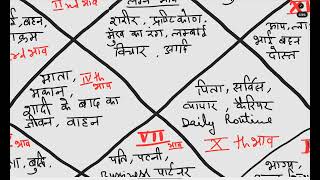 IInd भाव
बहन,
rd भाव
शरीर, दृष्टिकोण
मुख का रंग, लम्बाई
विचार,
भाई बहन
दोस्त
माता, IVth भाव
मकान,
शादी के बाद का
जीवन, वाहन
पिता, सर्विस,
व्यापार, कैरियर
Daily Routine
Xth भाव
VII
भाव
पति, पत्नी,
Business पार्टनर
भाग्य,